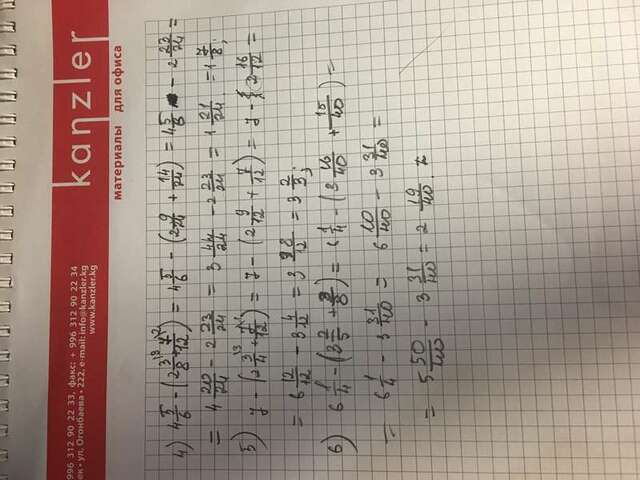 kanzler
материалы для офиса
996 312 90 22 33, факс: + 996 312 90 22 34
ек • ул. Огонбаева • 222, e-mail: info@kanzler.kg
www.kanzler.kg
4) 4 5/6 - (2 3/8 + 7/12) = 4 5/6 - (2 9/24 + 14/24) = 4 5/6 - 2 23/24 =
= 4 20/24 - 2 23/24 = 3 44/24 - 2 23/24 = 1 21/24 = 1 7/8;
5) 7 - (2 3/4 + 7/12) = 7 - (2 9/12 + 7/12) = 7 - (2 16/12 =
= 6 12/12 - 3 4/12 = 3 8/12 = 3 2/3;
6) 6 1/4 - (3 2/5 + 3/8) = 6 1/4 - (3 16/40 + 15/40) =
= 6 1/4 - 3 31/40 = 6 10/40 - 3 31/40 =
= 5 50/40 - 3 31/40 = 2 19/40.